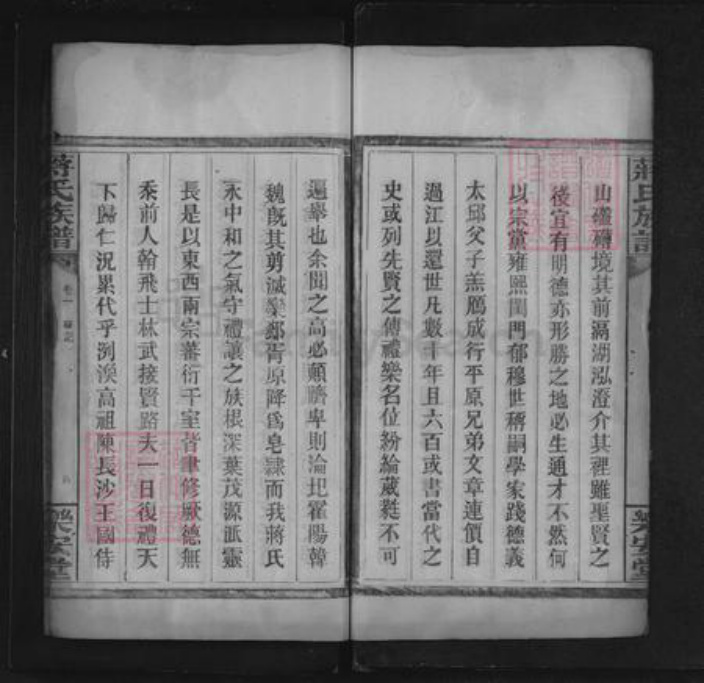 蔣氏族譜
樂安堂
山𥕢𥕢境其前滆湖泓澄介其裡雖聖賢之
後宜有明德亦形勝之地必生通才不然何
以宗黨雍熙閨門郁穆世稱嗣學家踐德義
太邱父子羔鴈成行平原兄弟文章連價自
過江以還世凡數十年且六百或書當代之
史或列先賢之傳禮樂名位紛綸葳蕤不可
遍舉也余聞之高必顛隮卑則淪圯霍陽韓
魏旣其剪滅欒郤胥原降爲皂隸而我蔣氏
永中和之氣守禮讓之族根深葉茂源派靈
長是以東西兩宗蕃衍千室皆聿修厥德無
忝前人翰飛士林武接賢路夫一日復禮天
下歸仁況累代乎洌湙高祖陳長沙王國侍
蔣氏族譜
卷一
樂安堂